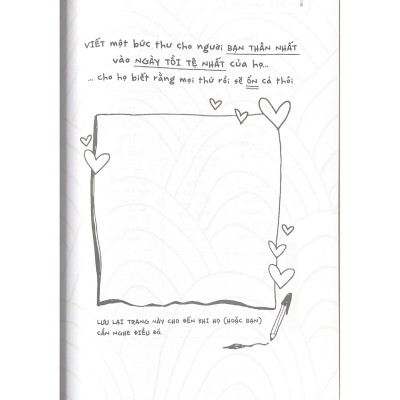 VIẾT một bức thư cho người BẠN THÂN NHẤT
vào NGÀY TỒI TỆ NHẤT của họ...
... cho họ biết rằng mọi thứ rồi sẽ ỔN cả thôi
LƯU LẠI TRANG NÀY CHO ĐẾN KHI HỌ (HOẶC BẠN)
CẦN NGHE ĐIỀU ĐÓ.